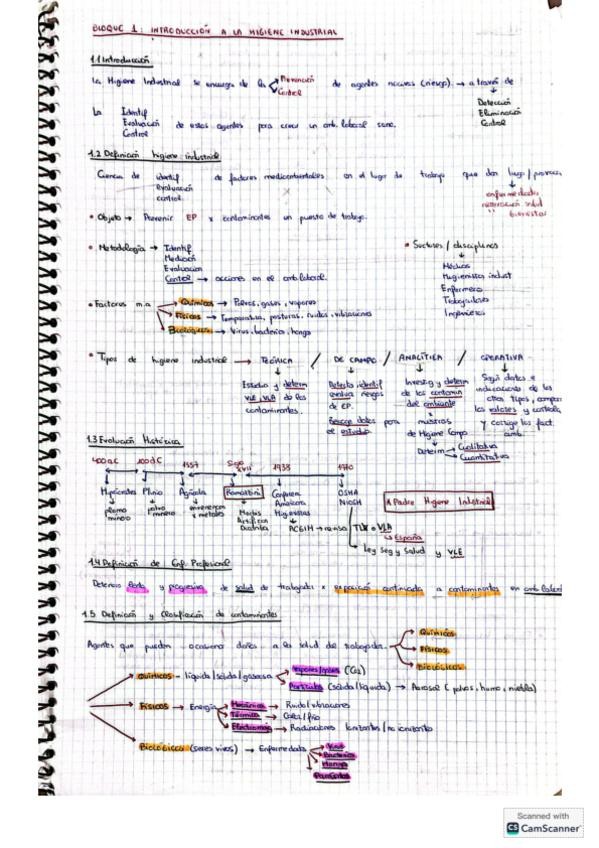 BLOQUE 1: INTRODUCCIÓN A LA HIGIENE INDUSTRIAL
1.1 Introducción
La Higiene Industrial se encarga de la Prevención de agentes nocivos (riesgo) → a través de
Control
Detección
Eliminación
Control
La Identif
Evaluación de estos agentes para crear un amb. laboral sano.
Control
1.2 Definición higiene industrial
Ciencia de identif de factores medioambientales en el lugar de trabajo que dan lugar/provocan
evaluación
control
enfermedades
" bienestar
• Objeto → Prevenir EP x contaminantes un puesto de trabajo.
• Metodología → Identif
Medición
Evaluación
Control → acciones en el amb laboral.
• Sectores / disciplinas
Médicos
Higienistas indust
Enfermeros
Trabajadores
Ingenieros
• Factores m.a
Químicos → Polvos, gases, vapores
Físicos → Temperatura, posturas, ruidos, vibraciones
Biológicos → Virus, bacterias, hongo
• Tipos de higiene industrial → TEÓRICA / DE CAMPO / ANALÍTICA / OPERATIVA
Estudio y determ
VLE, VLA de los
contaminantes.
Detecta, identif
evalua riesgos
de EP.
Recoge datos para
el estudio
Investig y determ
de los contamin
del ambiente
muestras
de Higiene Campo
Determ → Cualitativa
Cuantitativa
Según datos e
indicaciones de los
otros tipos, compara
los valores y controla,
y corrige los fact.
amb.
1.3 Evolución Histórica
400aC 100dC 1557 Siglo XVII 1938 1970
Hipócrates Plinio Agrícola Ramazzini Conferen OSHA
Americana NIOSH
Higienistas
plomo
minero
polvo
minero
Morbis
Artificum
Diatriba
ACGIH → TLV o VLA
↳ España
Ley Seg y Salud y VLE
Padre Higiene Industrial
1.4 Definición de Enf. Profesional
Deterioro lento y progresivo de salud de trabajador x exposición continuada a contaminantes en amb laboral
1.5 Definición y Clasificación de contaminantes
Agentes que pueden ocasionar daños a la salud del trabajador.
Químicos
Físicos
Biológicos
Químicos - líquido/sólido/gaseoso
Vapores/gases (Co2)
Partículas (sólido/líquido) → Aerosol (polvos, humo, niebla)
Físicos → Energía
Mecánica → Ruido/vibraciones
Térmica → Calor/frío
Electromag → Radiaciones Ionizantes/no ionizante
Biológicos (seres vivos) → Enfermedades
Virus
Bacterias
Hongos
Parásitos
Scanned with
CS CamScanner